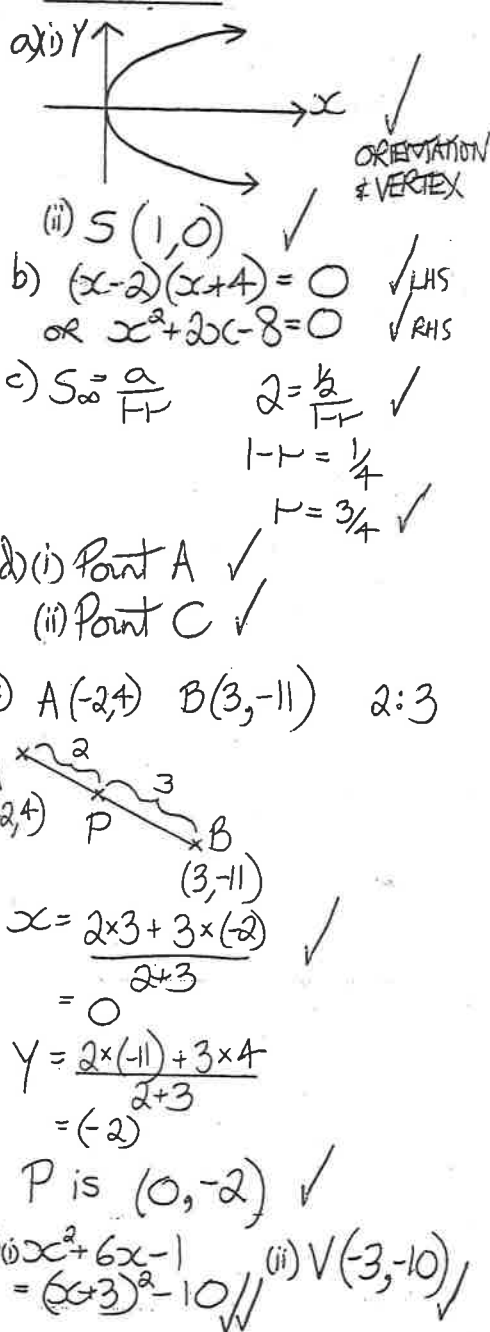 a)(i) Y
x
ORIENTATION
& VERTEX
(ii) S (1,0)
b) (x-2)(x+4) = 0 LHS
OR x²+2x-8=0 RHS
c) S∞ = a/1-r 2 = ½/1-r
1-r = 1/4
r = 3/4
d)(i) Point A
(ii) Point C
) A(-2,4) B(3,-11) 2:3
2
3
2,4) P
B
(3,-11)
x = 2×3 + 3×(-2)
2+3
= 0
Y = 2×(-11) + 3×4
2+3
= (-2)
P is (0,-2)
(i) x²+6x-1 (ii) V(-3,-10)
= (x+3)²-10